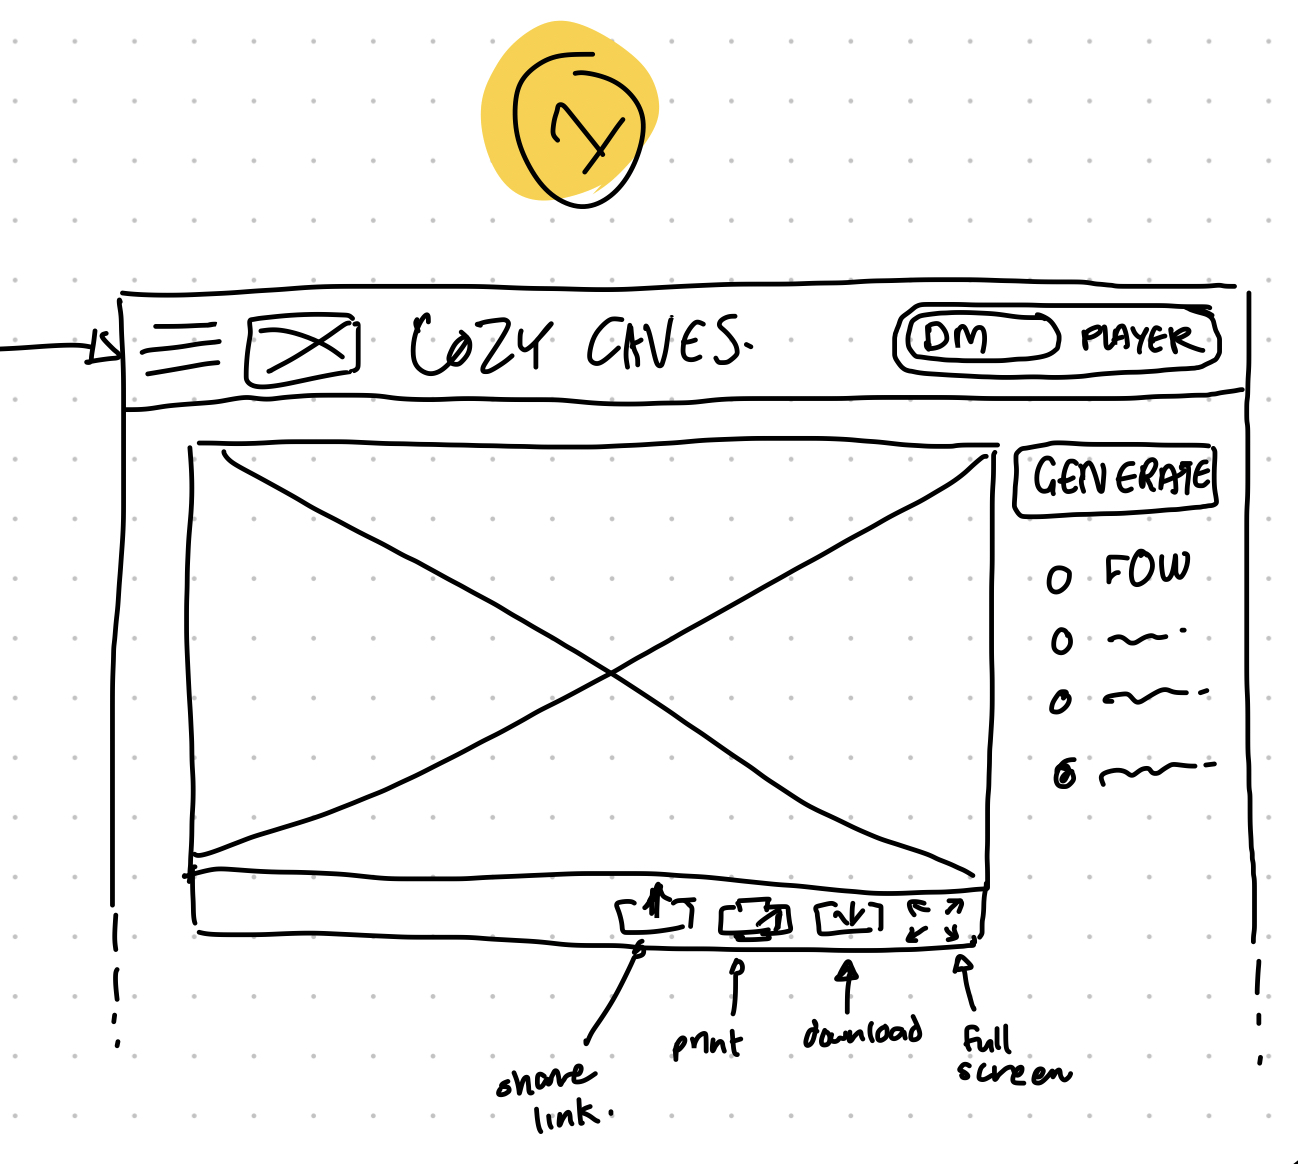 COZY CAVES.
DM PLAYER
GENERATE
FOW
share
link.
print
download
full
screen